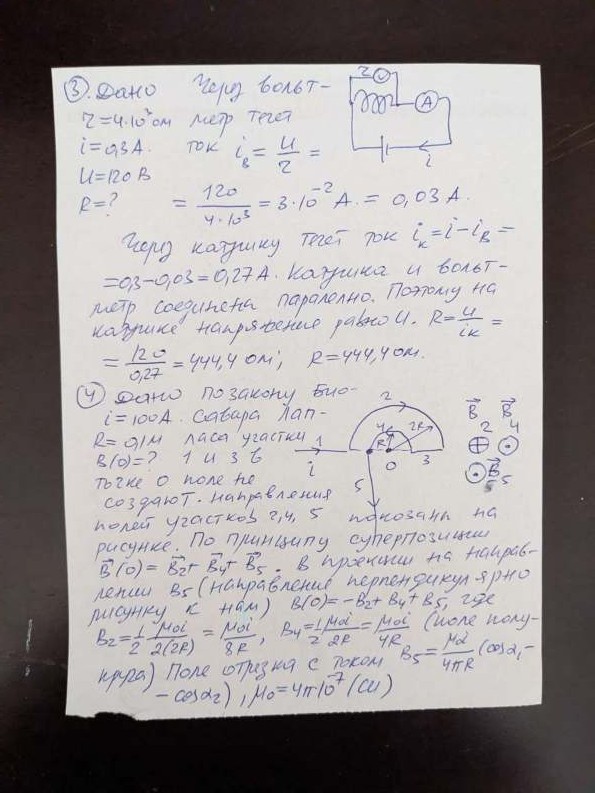 ③. Дано Через вольт-
r=4·10³ом метр течет
i=0,3А. ток iв = U/r =
U=120В
R=? = 120/4·10³ = 3·10⁻² А. = 0,03 А.
r V A i
Через катушку течет ток iк=i-iв=
=0,3-0,03=0,27А. Катушка и вольт-
метр соединена паралелно. Поэтому на
катушке напряжение равно U. R=U/iк =
= 120/0,27 = 444,4 ом; R=444,4 ом.
④ Дано По закону Био-
i=100А. Савара Лап-
R=0,1м ласа участки
B(0)=? 1 и 3 в
точке О поле не
создают. Направления
1 i 2 4 R 2R O 3 5
B⃗ B⃗
2 4
⊕ ⊙
⊙ B⃗5
полей участков 2, 4, 5 показаны на
рисунке. По принципу суперпозиции
B⃗(0) = B⃗2 + B⃗4 + B⃗5. В проекции на направ-
лении B5 (направление перпендикулярно
рисунку к нам) B(0)=-B2+B4+B5, где
B2=1/2 μ0i/2(2R) = μ0i/8R, B4=1/2 μ0i/2R = μ0i/4R (поле полу-
круга) Поле отрезка с током B5= μ0i/4πR (cosα1-
- cosα2), μ0=4π10⁻⁷ (СИ)